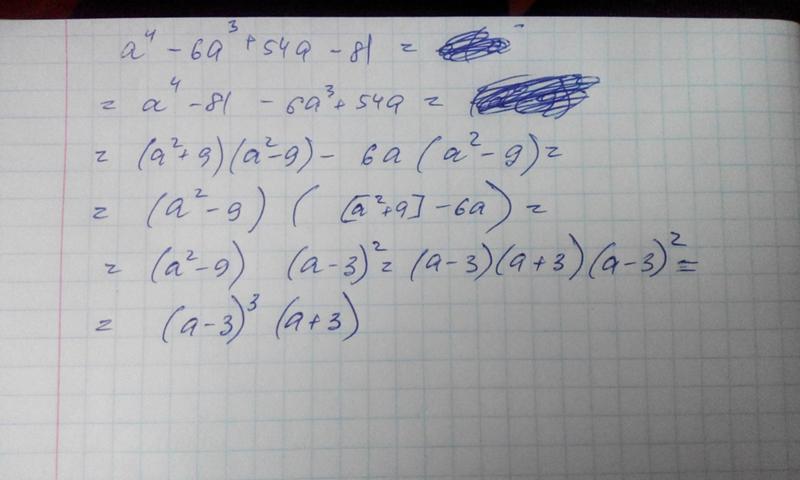 a⁴ - 6a³ + 54a - 81 =
= a⁴ - 81 - 6a³ + 54a =
= (a² + 9)(a² - 9) - 6a (a² - 9) =
= (a² - 9) ( [a² + 9] - 6a) =
= (a² - 9) (a - 3)² = (a - 3)(a + 3)(a - 3)² =
= (a - 3)³ (a + 3)